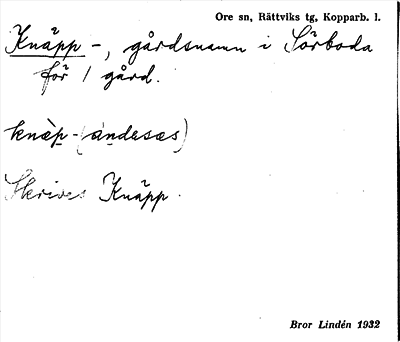 Ore sn, Rättviks tg, Kopparb. l.
Knäpp -, gårdsnamn i Sörboda
för 1 gård.
knæ̀p - (ándesæs)
Skrives Knäpp.
Bror Lindén 1932